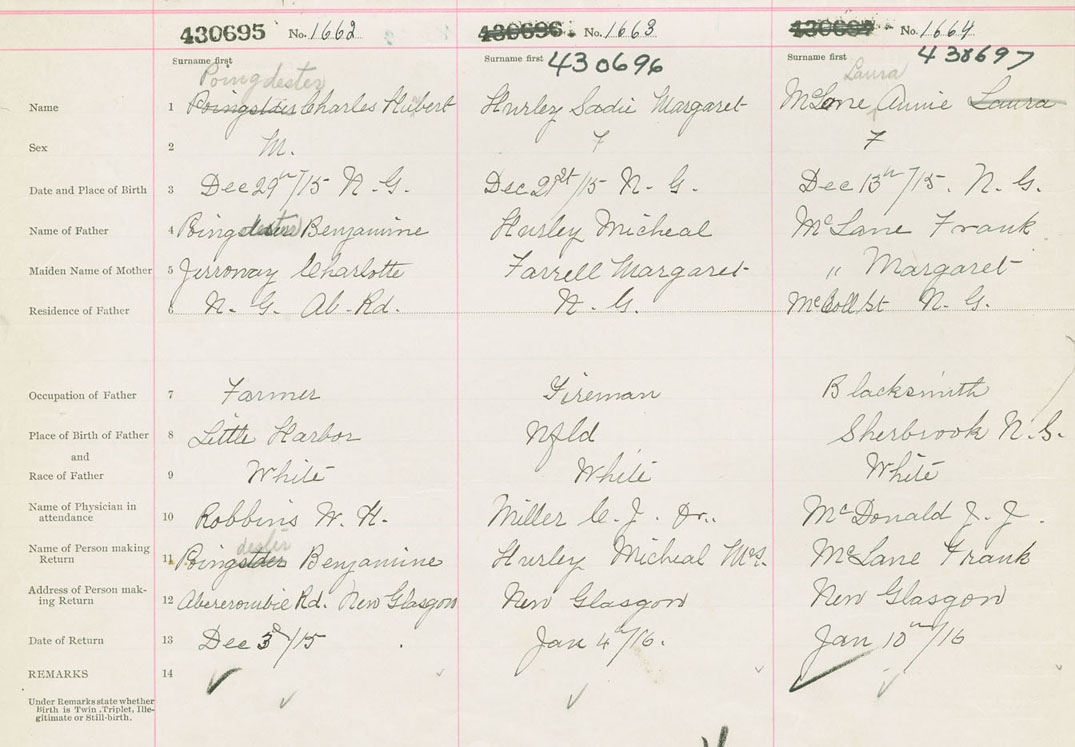 430695 No. 1662 430696 No. 1663 No. 1664
Surname first Surname first 430696 Surname first 430697
Poingdester Laura
Name 1 Poingslder Charles Hubert Hurley Sadie Margaret McLane Annie Laura
Sex 2 M. F F
Date and Place of Birth 3 Dec 29th/15 N-G. Dec 21st/15 N-G. Dec 13th/15. N.G.
Name of Father 4 Poingdester Benjamine Hurley Micheal McLane Frank
Maiden Name of Mother 5 Jerroway Charlotte Farrell Margaret " Margaret
Residence of Father 6 N-G. Ab-Rd. N-G. McColl St N.G.
Occupation of Father 7 Farmer Fireman Blacksmith
Place of Birth of Father 8 Little Harbor Nfld Sherbrook N.S.
and
Race of Father 9 White White White
Name of Physician in
attendance 10 Robbins W. H. Miller C. J. Dr. McDonald J. J.
Name of Person making
Return 11 Poingdester Benjamine Hurley Micheal Mrs. McLane Frank
Address of Person mak-
ing Return 12 Abercrombie Rd. New Glasgow New Glasgow New Glasgow
Date of Return 13 Dec 3d/15 Jan 4th/16. Jan 10th/16
REMARKS 14
Under Remarks state whether
Birth is Twin, Triplet, Ille-
gitimate or Still-birth.